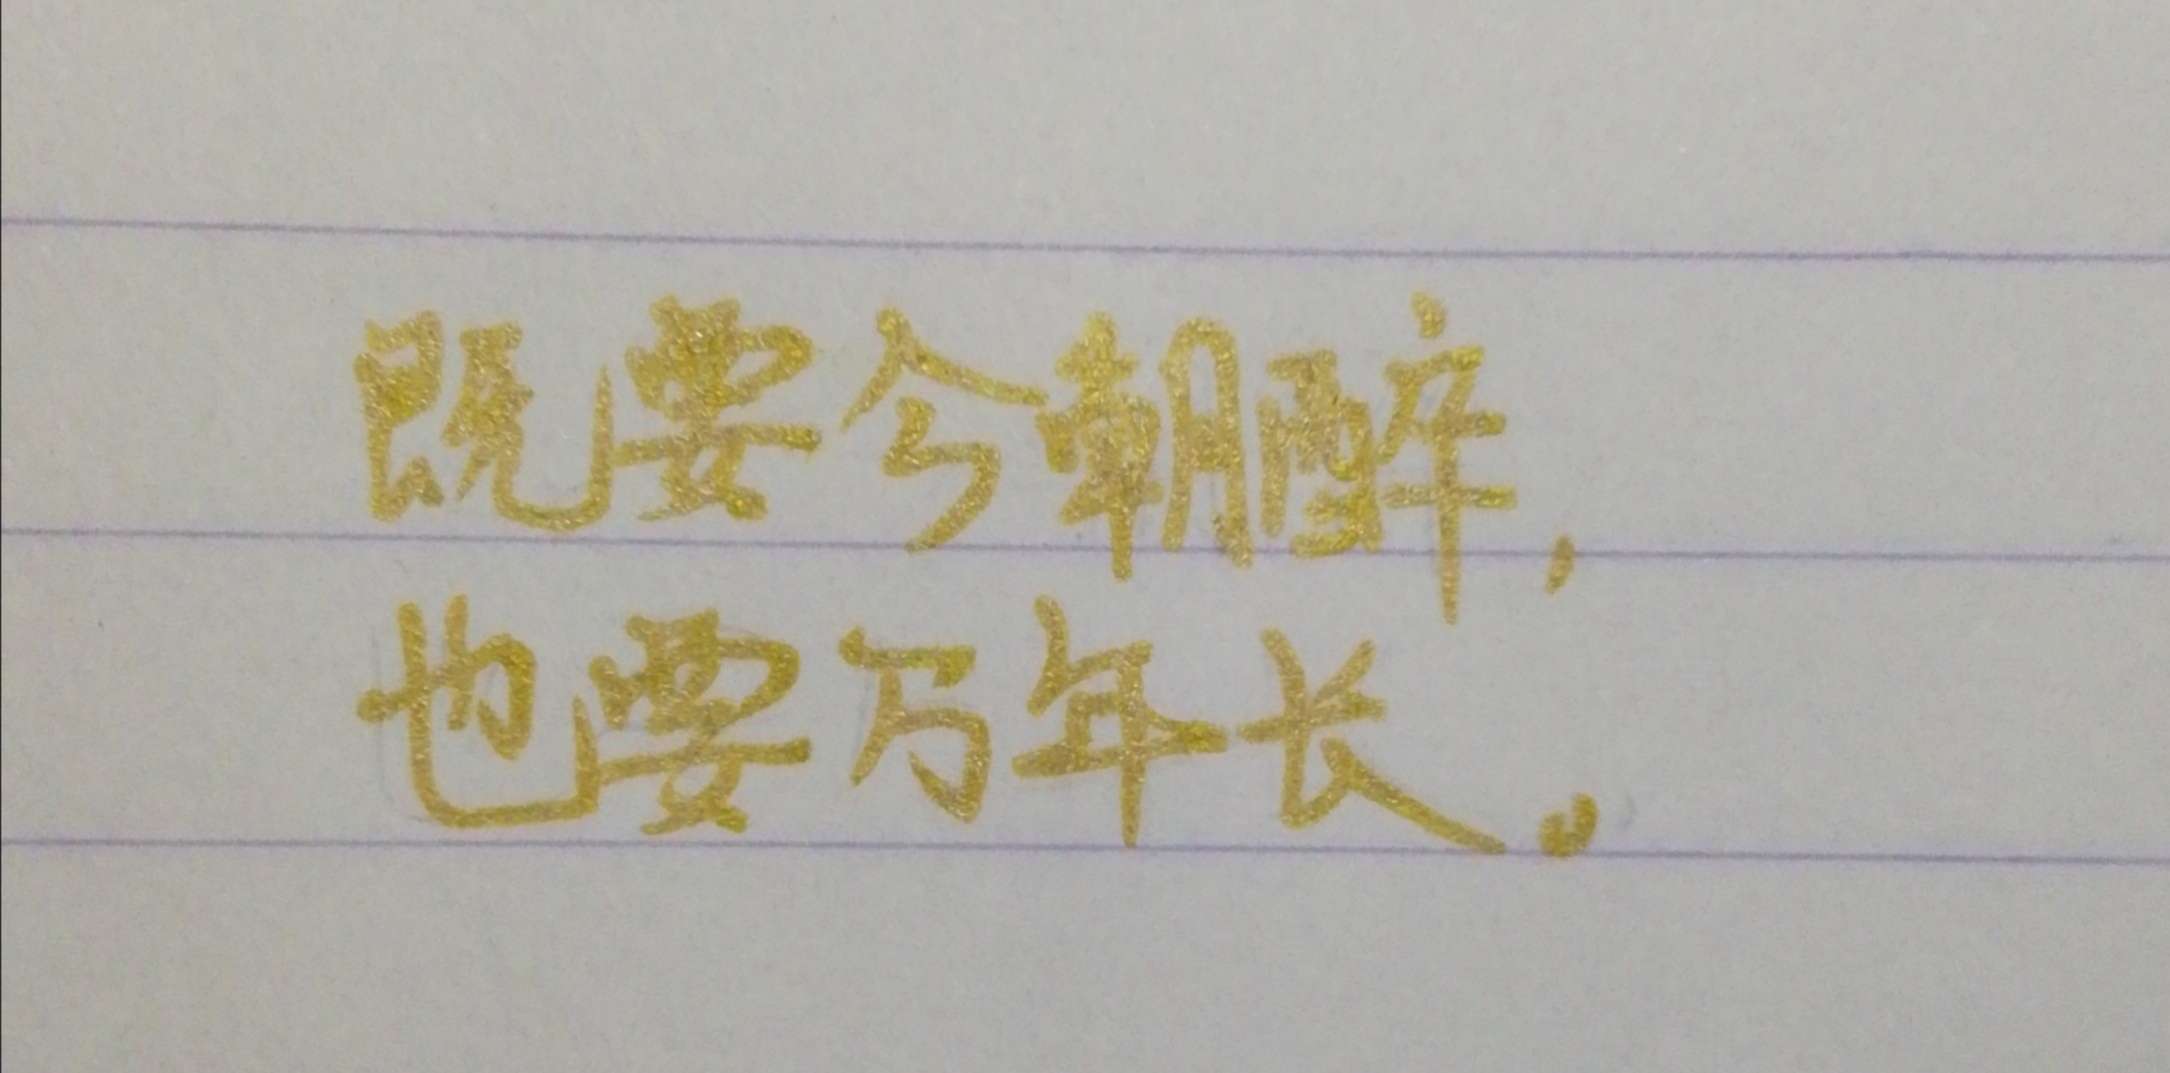 既要今朝醉，
也要万年长。